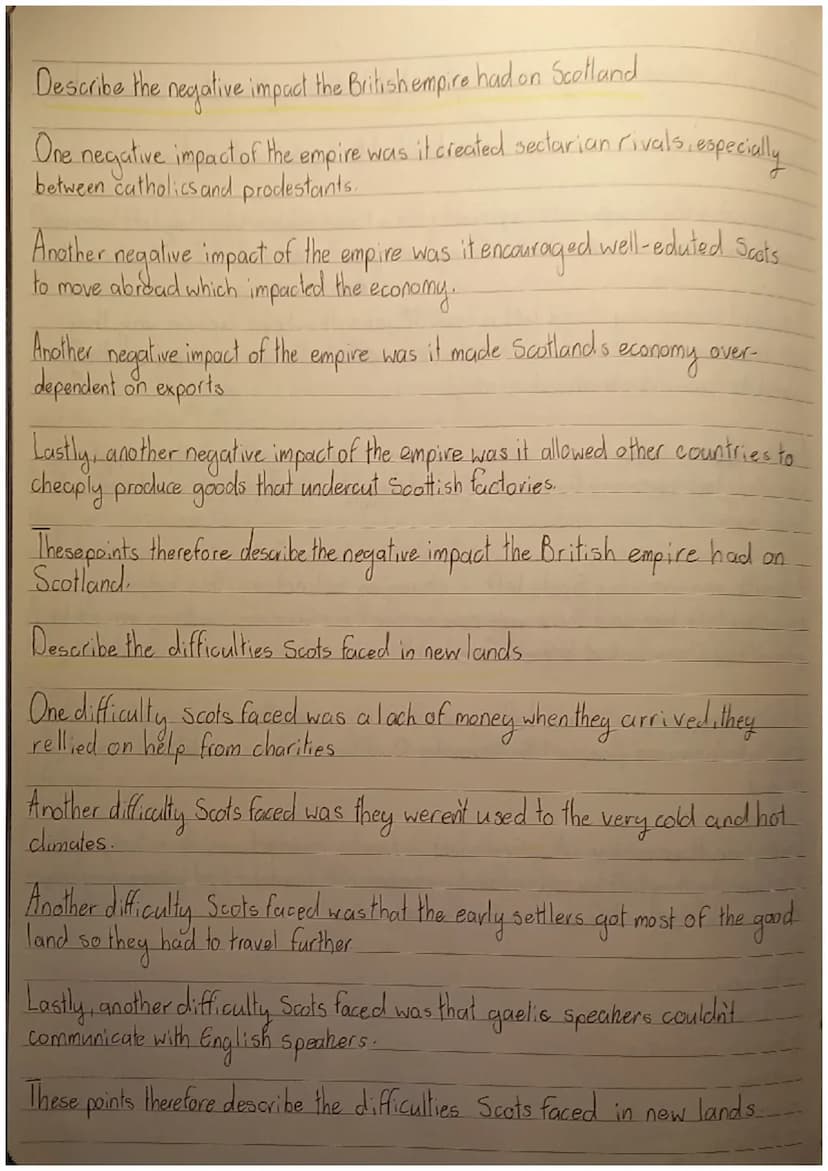 Describe the negative impact the British empire had on Scotland
One negative impact of the empire was it created sectarian rivals, especially
between catholics and prodestants.
Another negative impact of the empire was it encouraged well-eduted Scots
to move abroad which impacted the economy.
Another negative impact of the empire was it made Scotlands economy over-
dependent on exports
Lastly, another negative impact of the empire was it allowed other countries to
cheaply produce goods that undercut Scottish factories.
These points therefore describe the negative impact the British empire had on
Scotland.
Describe the difficulties Scots faced in new lands
One difficulty scots faced was a lach of money when they arrived, they
rellied on help from charities
Another difficulty Scots faced was they weren't used to the very cold and hot
climates.
Another difficulty Scots faced was that the early settlers got most of the good
land so they had to travel further
Lastly, another difficulty Scots faced was that gaelic speakers couldn't
communicate with English speakers.
These points therefore describe the difficulties Scots faced in new lands